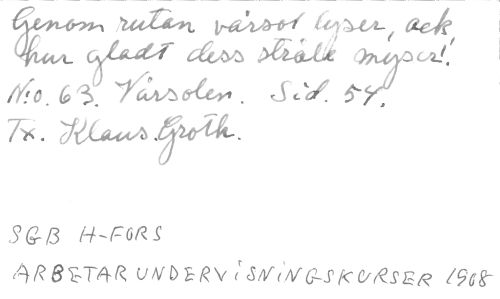 Genom rutan vårsol lyser, ack,
hur gladt dess stråle myser!
N:o. 63. Vårsolen. Sid. 54.
Tx. Klaus Groth.
SGB H-FORS
ARBETARUNDERVISNINGSKURSER 1908